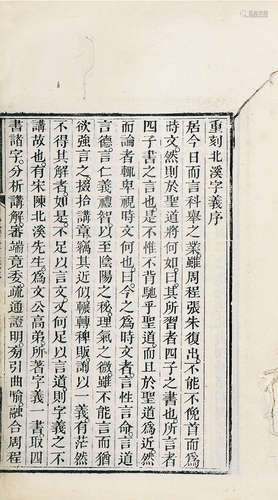 重刻北溪字義序
居今日而言科舉之業雖周程張朱復出不能不俛首而爲
時文然則於聖道將何如曰其所習者四子之書也所言者
四子之言也是不惟不背馳乎聖道而且於聖道爲近然
而論者輒卑視時文何也曰今之爲時文者言性言命言道
言德言仁義禮智以至陰陽之秘理氣之微雖不能言而猶
欲強言之掇拾講章竊其近似輾轉稗販講以一義有茫然
不得其解者如是不足以言文文何足以言道則字義之不
講故也有宋陳北溪先生爲文公高弟所著字義一書取四
書諸字分析講解審端竟委疏通證明旁引曲喻融合周程